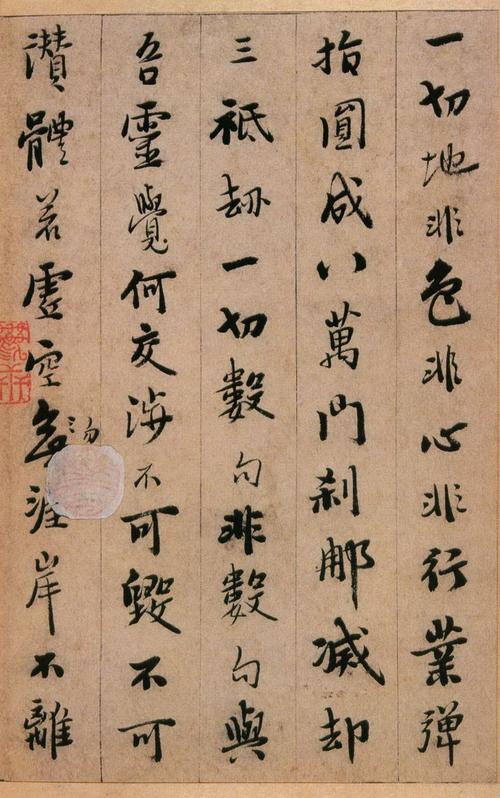 一切地非色非心非行業彈
指圓成八萬門刹那滅却
三祇劫一切數句非數句與
吾靈覺何交涉不可毀不可
讚體若虛空無勿涯岸不離